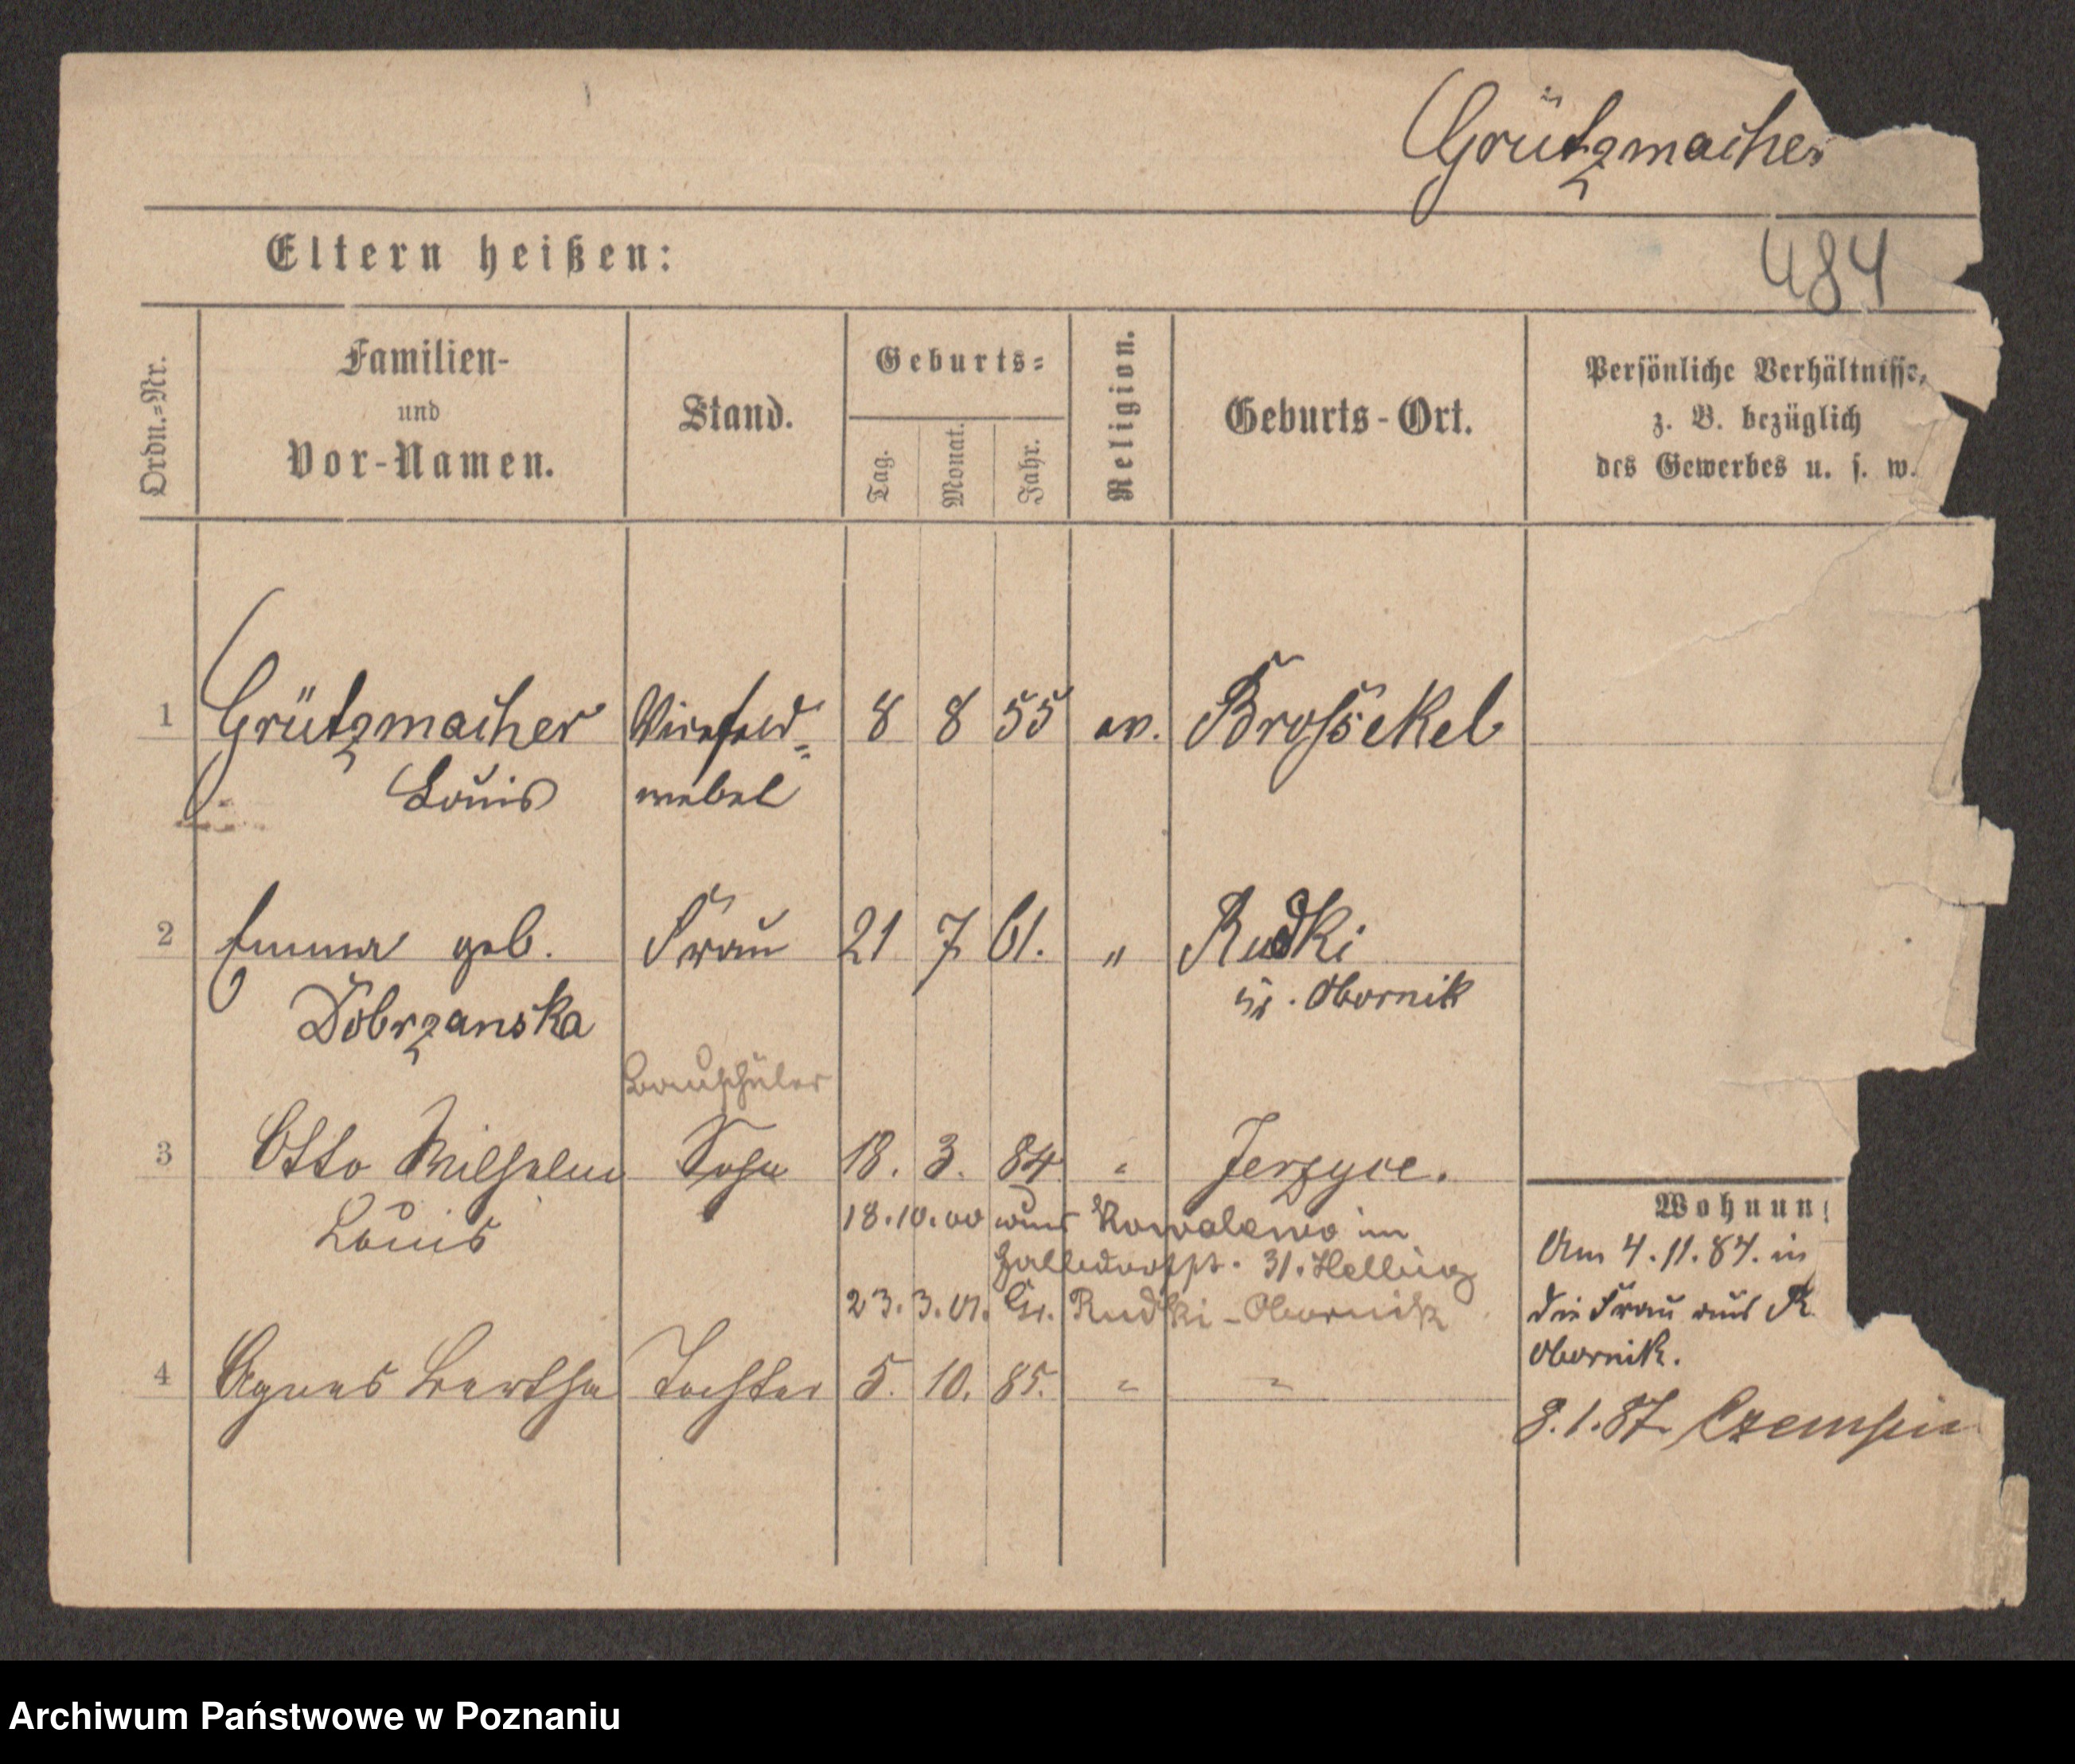 Grützmacher
Eltern heißen:
484
Ordn.=Nr.
Familien-
und
Vor-Namen.
Stand.
Geburts=
Tag.
Monat.
Jahr.
Religion.
Geburts-Ort.
Persönliche Verhältnisse,
z. B. bezüglich
des Gewerbes u. s. w.
1 Grützmacher Vicefeld= 8 8 55 ev.
Louis webel
2 Emma geb. Frau 21 7 61. " Rudki
Dobrzanska Obornik
Bauschüler
3 Otto Wilhelm Sohn 18. 3. 84 " Jerzyce.
Louis
18.10.00 aus Kowalewo in
31. Helbig
23.3.01. Gr. Rudki - Obornik
4 Agnes Bertha Tochter 5. 10. 85. " "
Wohnun
Am 4.11.84. in
die Frau aus R
Obornik.
8.1.87. Czempin
Archiwum Państwowe w Poznaniu